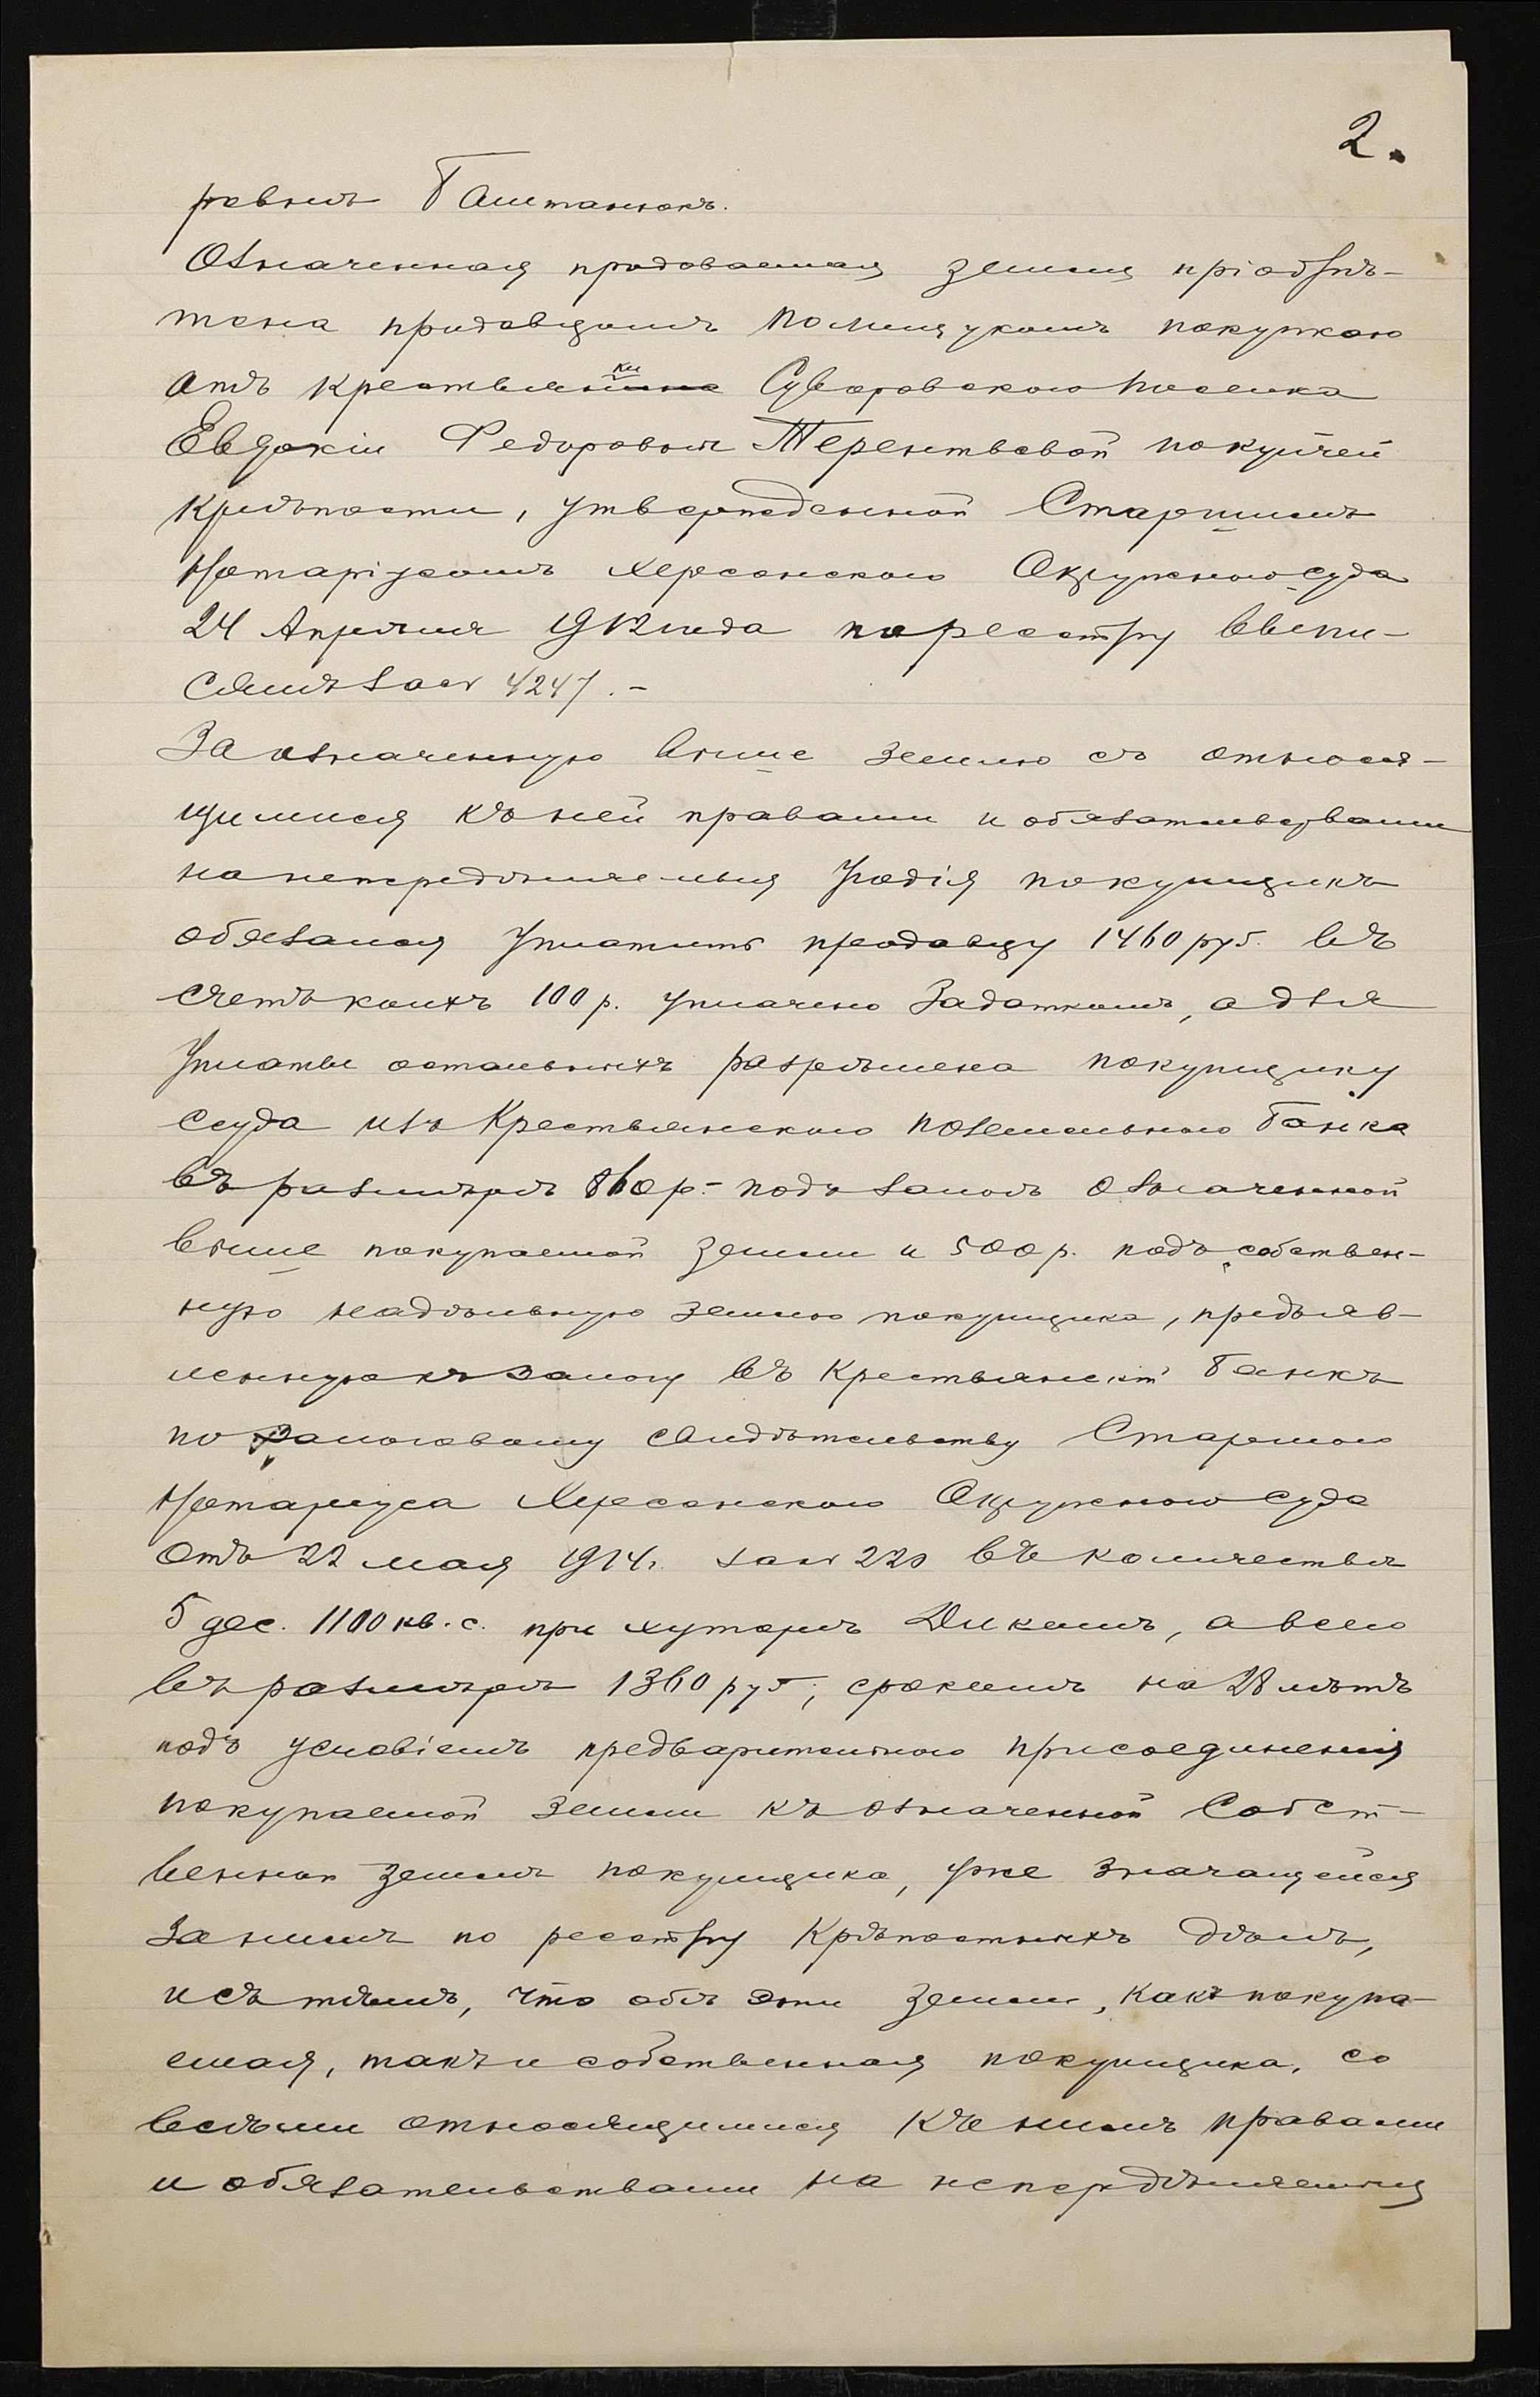 2.
ровымъ Таштанюкъ.
Означенная продаваемая земля пріобрѣ-
тена продавцомъ Полищукомъ покупкою
отъ крестьянки Суворовского поселка
Евдокіи Федоровны Терентьевой по купчей
крѣпости, утвержденной Старшимъ
Нотаріусомъ Херсонскаго Окружного суда
24 Апрѣля 1912 года по реестру ввени-
самъ за № 4247.-
За означенную выше землю съ относя-
щимися къ ней правами и обязательствами
на непередѣляемыя угодія покупщикъ
обязался уплатить продавцу 1460 руб. въ
счетъ коихъ 100 р. уплачено задаткомъ, а для
уплаты остальныхъ разрѣшена покупщику
ссуда изъ Крестьянскаго поземельнаго Банка
въ размѣрѣ 860 р.- подъ залогъ означенной
выше покупаемой земли и 500 р. подъ собствен-
ную надѣльную землю покупщика, предъяв-
ленную къ залогу въ Крестьянскій Банкъ
по залоговому свидѣтельству Старшаго
Нотаріуса Херсонскаго Окружного суда
отъ 22 мая 1914 г. за № 220 въ количествѣ
5 дес. 1100 кв. с. при хуторѣ Дикомъ, а всего
въ размѣрѣ 1360 руб., срокомъ на 28 лѣтъ
подъ условіемъ предварительнаго присоединенія
покупаемой земли къ означенной собст-
венной землѣ покупщика, уже значащейся
за нимъ по реестру крѣпостныхъ дѣлъ,
и съ тѣмъ, что обѣ эти земли, какъ покупа-
емая, такъ и собственная покупщика, со
всѣми относящимися къ нимъ правами
и обязательствами на непередѣляемыя